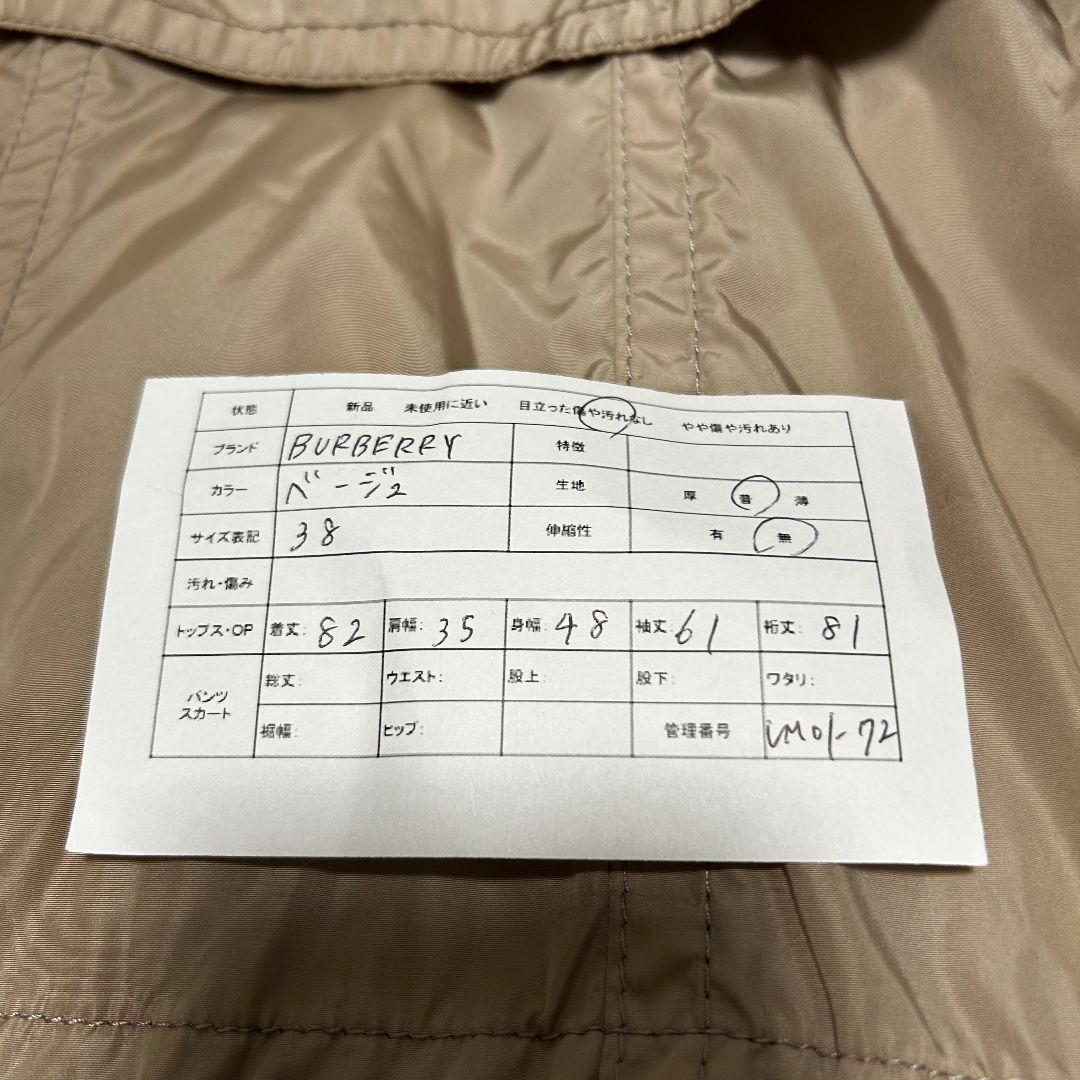 状態 新品 未使用に近い 目立った傷や汚れなし やや傷や汚れあり
ブランド BURBERRY 特徴
カラー ベージュ 生地 厚 普 薄
サイズ表記 38 伸縮性 有 無
汚れ・傷み
トップス・OP 着丈: 82 肩幅: 35 身幅: 48 袖丈: 61 裄丈: 81
パンツ スカート 総丈: ウエスト: 股上: 股下: ワタリ:
裾幅: ヒップ: 管理番号